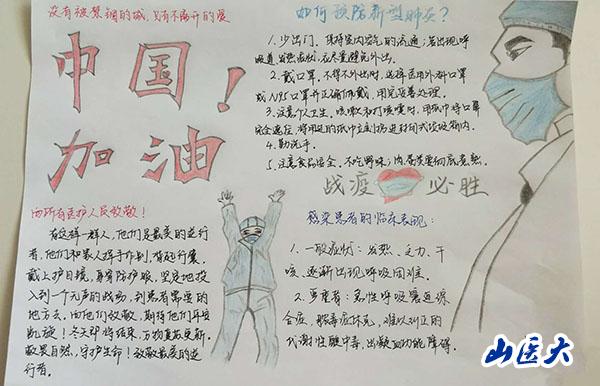 没有被禁锢的城，只有不离开的爱
中国！
加油
向所有医护人员致敬！
有这样一群人，他们是最美的逆行
者，他们和家人挥手作别，背起行囊，
戴上护目镜，身着防护服，坚定地投
入到一个无声的战场，到患者需要的
地方去。向他们致敬，期待他们平安
凯旋！冬天即将结束，万物重启更新，
敬畏自然，守护生命！致敬最美的逆
行者。
如何预防新型肺炎？
1. 少出门，保持室内空气的流通；若出现呼
吸道、发热症状，应尽量避免外出。
2. 戴口罩，不得不外出时，选择医用外科口罩
或N95口罩并正确佩戴，用完妥善处理。
3. 注意个人卫生，咳嗽和打喷嚏时，用纸巾将口鼻
完全遮住，将用过的纸巾立刻扔进封闭式垃圾箱内。
4. 勤洗手。
5. 注意食品安全，不吃野味，肉、蛋类要彻底煮熟。
战疫 必胜
感染患者的临床表现：
1. 一般症状：发热、乏力、干
咳、逐渐出现呼吸困难。
2. 严重者：急性呼吸窘迫综
合症、脓毒症休克、难以纠正的
代谢性酸中毒、出凝血功能障碍。
山医大